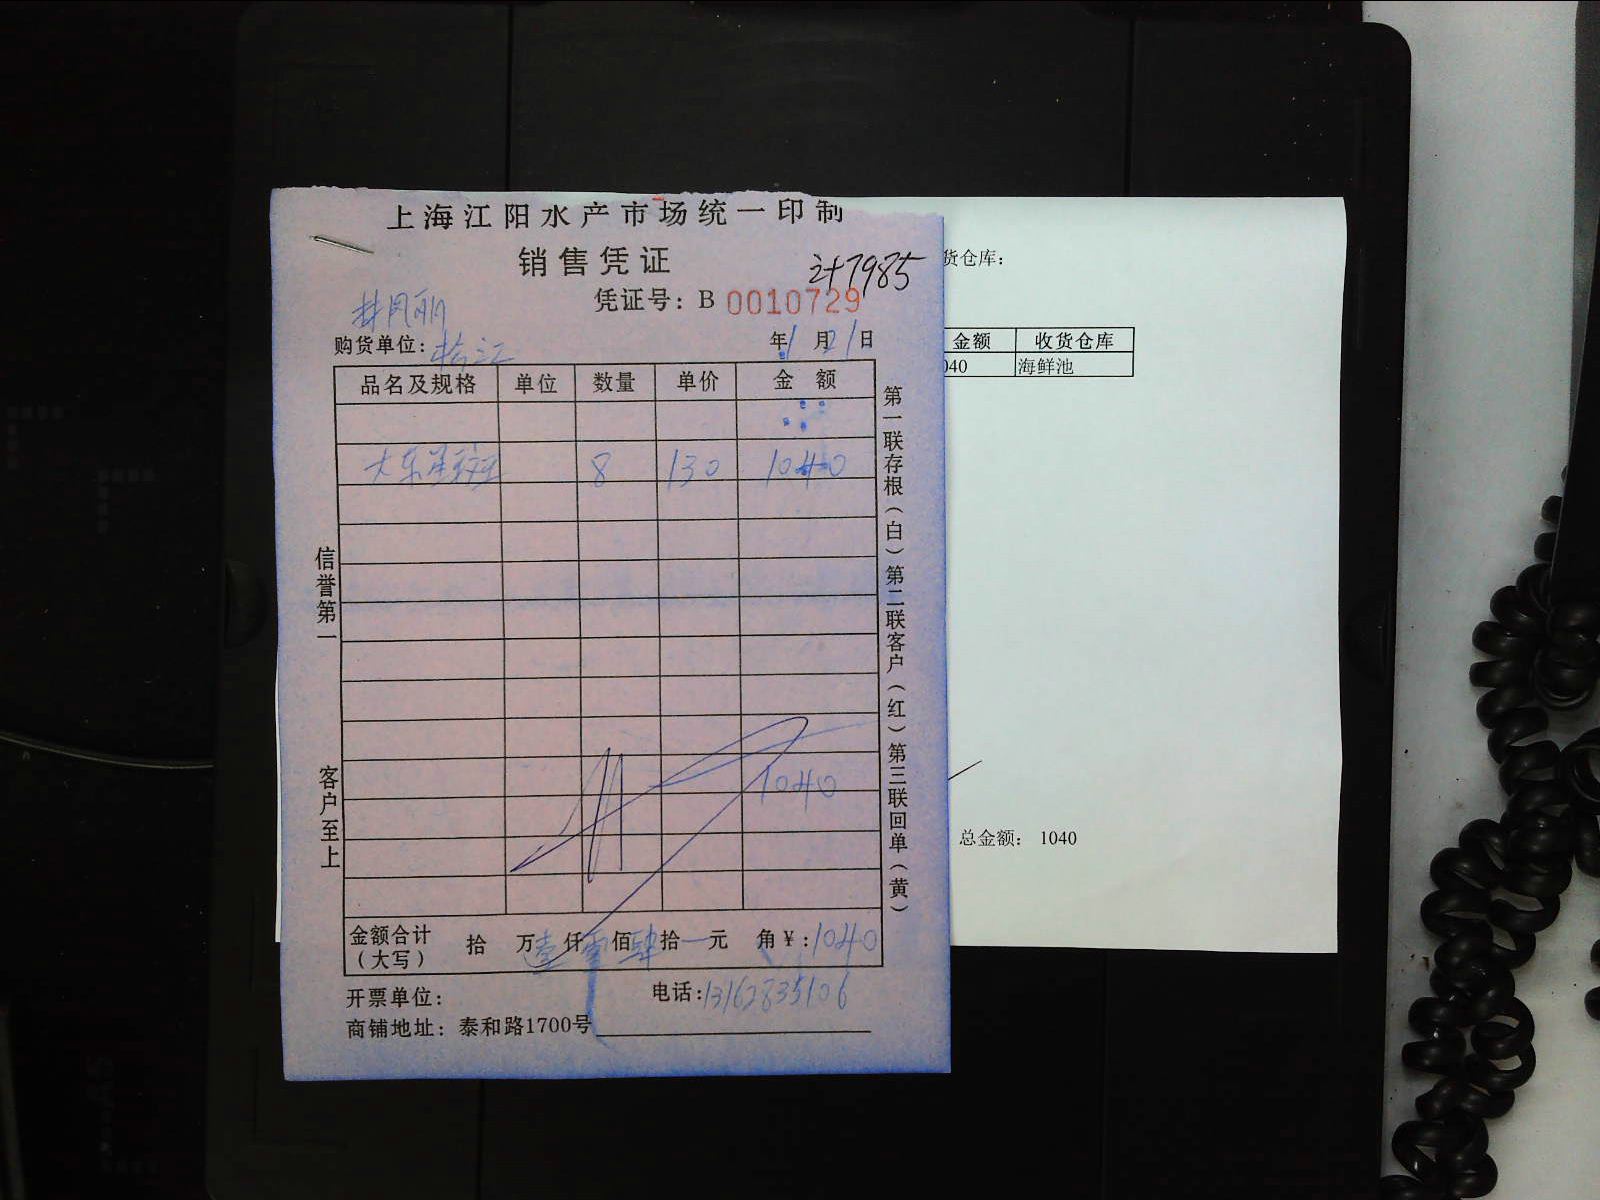 上海江阳水产市场统一印制
销售凭证
计7985
凭证号：B 0010729
购货单位：
年1月21日
品名及规格 单位 数量 单价 金额
8 130 1040
1040
金额合计（大写） 拾 万壹仟零佰肆拾 元 角￥：1040
开票单位： 电话：13162835106
商铺地址：泰和路1700号
信誉第一 客户至上
第一联存根（白）第二联客户（红）第三联回单（黄）
货仓库：
金额 收货仓库
040 海鲜池
总金额： 1040